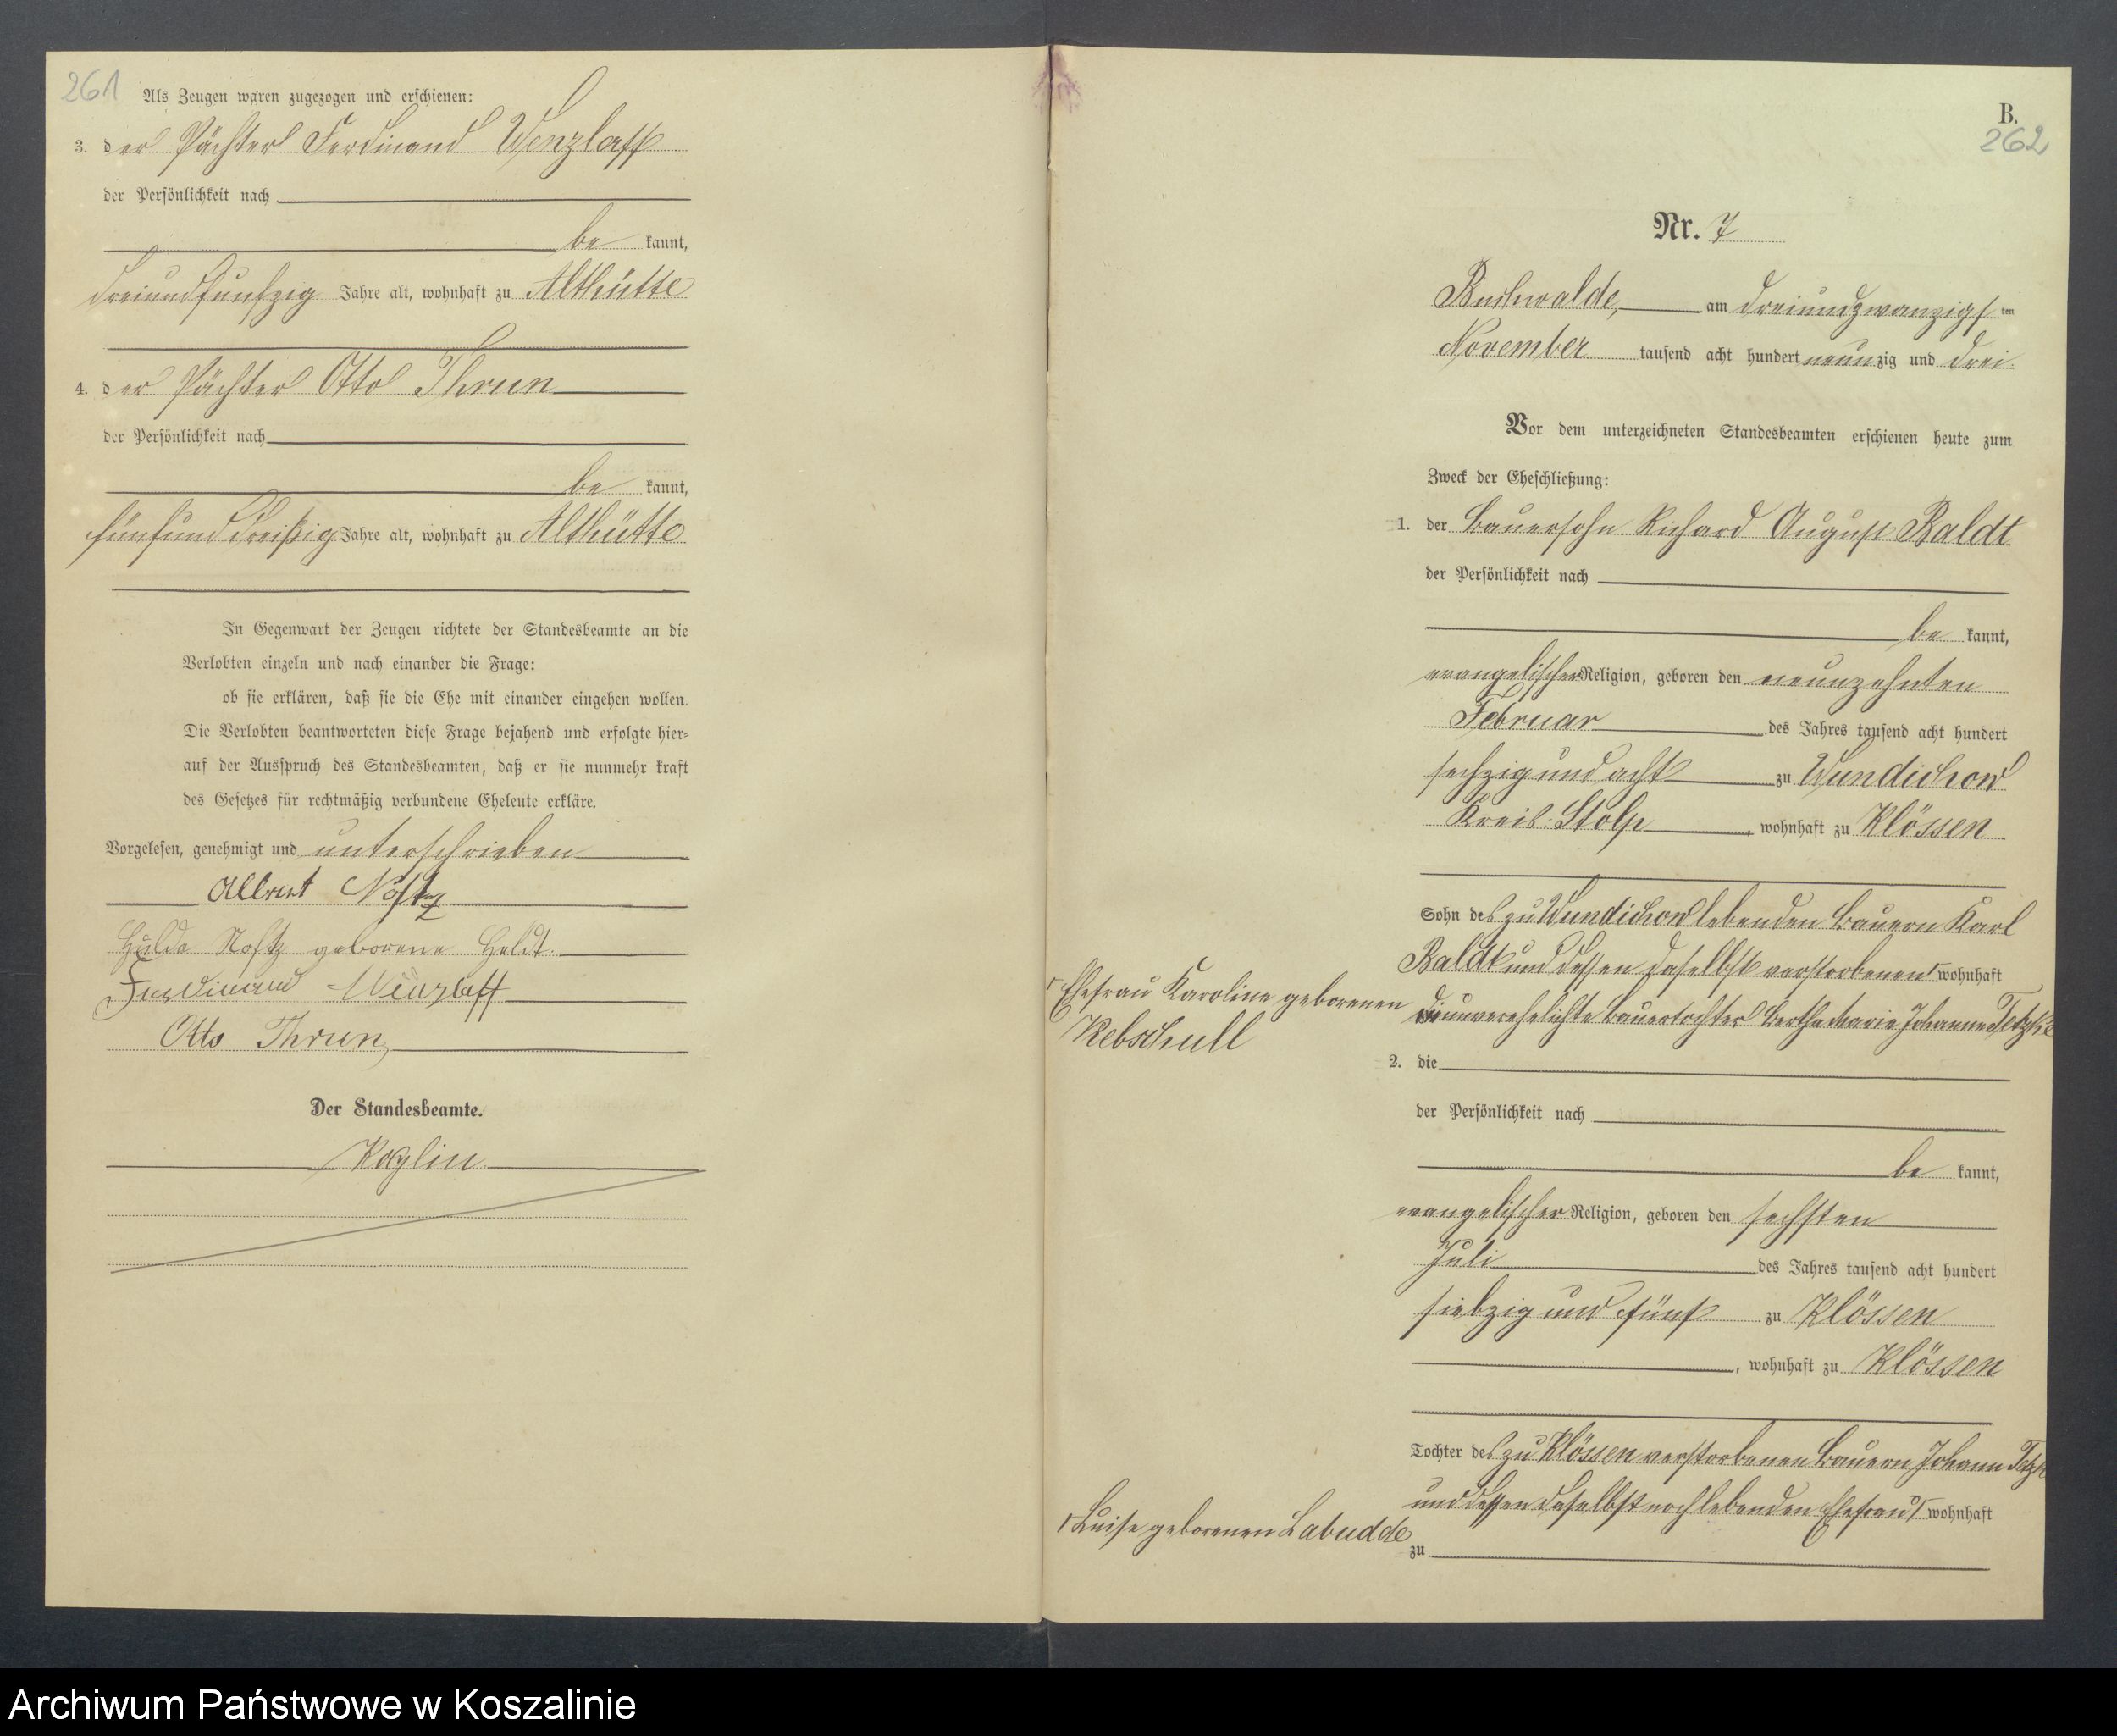 261
Als Zeugen waren zugezogen und erschienen:
3. der Pächter Ferdinand Wenzlaff
der Persönlichkeit nach
be kannt,
dreiundfunfzig Jahre alt, wohnhaft zu Althütte
4. der Pächter Otto Thrun
der Persönlichkeit nach
be kannt,
fünfunddreißig Jahre alt, wohnhaft zu Althütte
In Gegenwart der Zeugen richtete der Standesbeamte an die
Verlobten einzeln und nach einander die Frage:
ob sie erklären, daß sie die Ehe mit einander eingehen wollen.
Die Verlobten beantworteten diese Frage bejahend und erfolgte hier-
auf der Ausspruch des Standesbeamten, daß er sie nunmehr kraft
des Gesetzes für rechtmäßig verbundene Eheleute erkläre.
Vorgelesen, genehmigt und unterschrieben
Albert Nostz
Hulda Nostz geborene Heldt.
Ferdinand Wenzlaff
Otto Thrun
Der Standesbeamte.
Koglin
B.
262
Nr. 7
Buchwalde, am dreiundzwanzigsten
November tausend acht hundert neunzig und drei.
Vor dem unterzeichneten Standesbeamten erschienen heute zum
Zweck der Eheschließung:
1. der Bauersohn Richard August Baldt
der Persönlichkeit nach
be kannt,
evangelischer Religion, geboren den neunzehnten
Februar des Jahres tausend acht hundert
sechzig und acht zu Wundichow
Kreis Stolp, wohnhaft zu Klössen
Sohn des zu Wundichow lebenden Bauern Karl
Baldt und dessen daselbst verstorbenen ⌈ wohnhaft
⌈ Ehefrau Karoline geborenen
Rebschull
die unverehelichte Bauertochter Bertha Marie Johanne Tetzke
2. die
der Persönlichkeit nach
be kannt,
evangelischer Religion, geboren den sechsten
Juli des Jahres tausend acht hundert
siebzig und fünf zu Klössen
, wohnhaft zu Klössen
Tochter des zu Klössen verstorbenen Bauern Johann Tetzke
und dessen daselbst noch lebenden Ehefrau ⌈ wohnhaft
⌈ Luise geborenen Labudde
zu
Archiwum Państwowe w Koszalinie